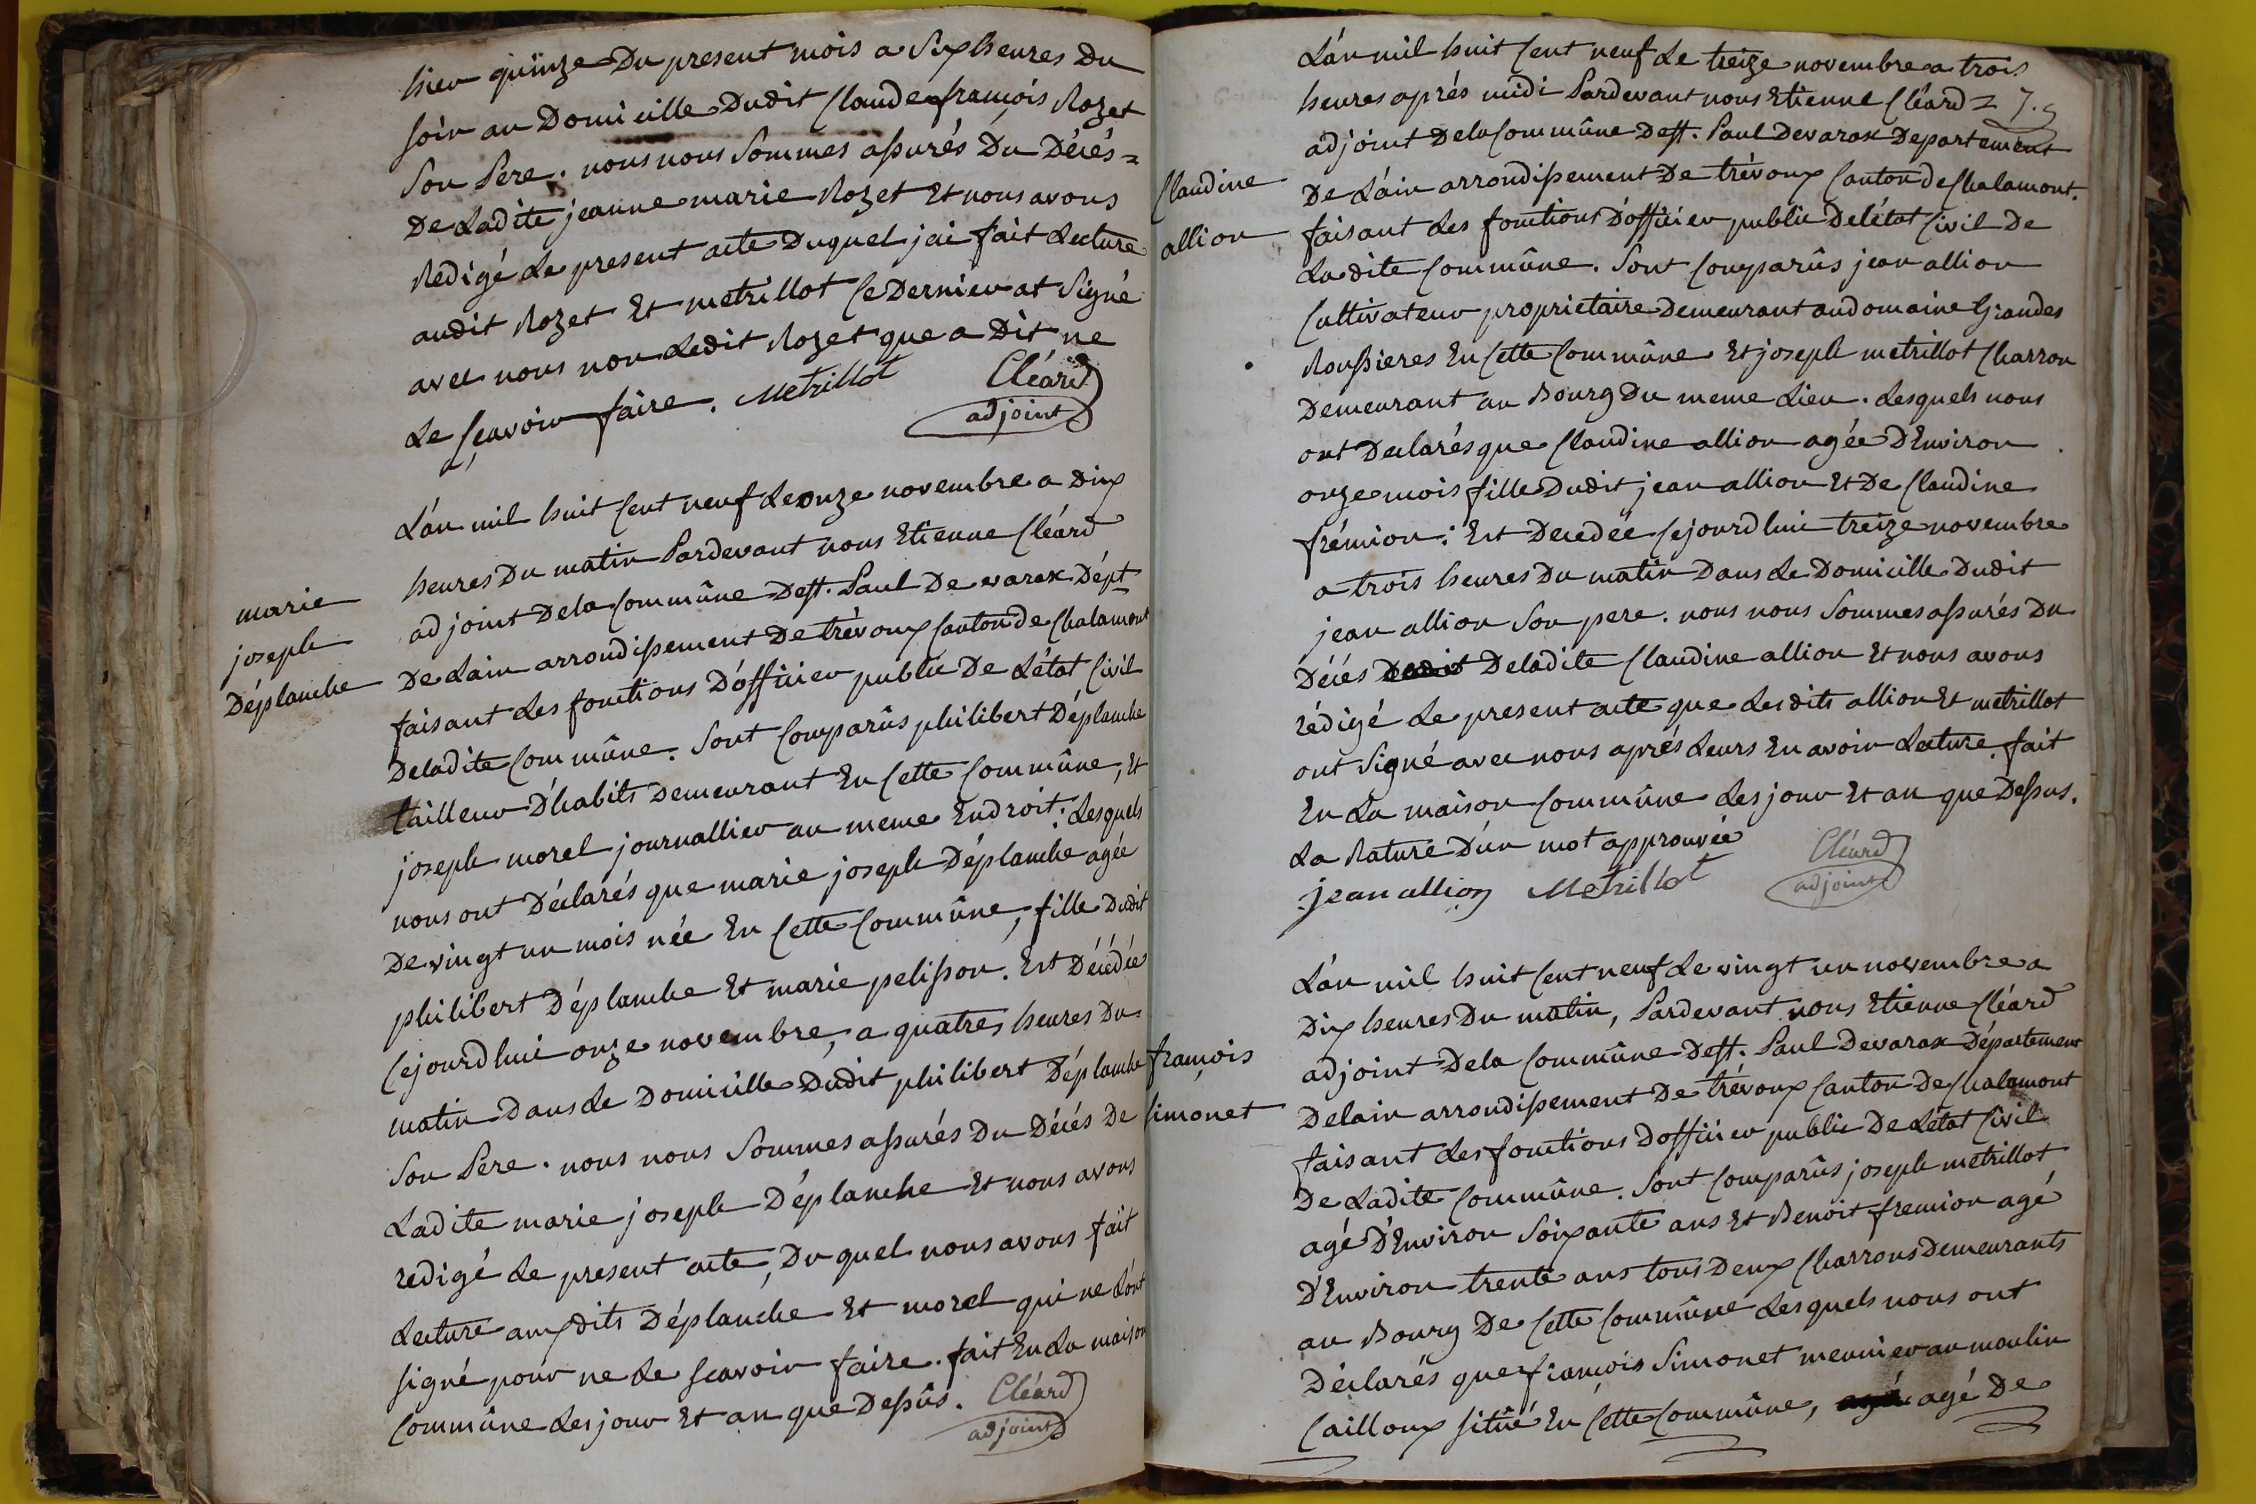 hier quinze Du present mois a Six heures Du
soir au Domicille Dudit Claude françois Rozet
Son Pere. nous nous Sommes assurés Du Décés =
De Ladite jeanne marie Rozet Et nous avons
Redigé Le present acte Duquel jai fait Lecture
audit Rozet Et metrillot Ce Dernier at Signé
avec nous non Ledit Rozet que a Dit ne
Le sçavoir faire. Metrillot Cléard
adjoint
marie
joseph
Déplanche
L'an mil huit Cent neuf Le onze novembre a Dix
heures Du matin Pardevant nous Etienne Cléard
adjoint Dela Commûne Dest. Paul De varax Dépt
De Lain arrondissement De trévoux Canton de Chalamont
faisant Les fonctions D'officier public De L'état Civil
Deladite Commûne. Sont Comparûs philibert Déplanche
tailleur D'habits Demeurant En Cette Commûne, Et
joseph morel journallier au meme Endroit; Lesquels
nous ont Déclarés que marie joseph Déplanche agée
De vingt un mois née En Cette Commûne, fille Dudit
philibert Déplanche Et marie pelisson. Est Décédée
Cejourdhui onze novembre, a quatres heures Du
matin Dans Le Domicille Dudit philibert Déplanche
Son Pere. nous nous Sommes assurés Du Décés De
Ladite marie joseph Déplanche Et nous avons
redigé Le present acte, Du quel nous avons fait
Lecture aux dits Déplanche Et morel qui ne L'ont
signé pour ne Le scavoir faire. fait En La maison
Commûne Les jour Et an que Dessûs. Cléard
adjoint
7.9
Claudine
allion
L'an mil huit Cent neuf Le treize novembre a trois
heures aprés midi Pardevant nous Etienne Cléard =
adjoint Dela Commûne Dest. Paul Devarax Departement
De L'ain arrondissement De trévoux Canton de Chalamont.
faisant Les fonctions D'officier public Delétat Civil De
La dite Commûne. Sont Comparûs jean allion
Cultivateur proprietaire Demeurant au domaine Grandes
Roussieres En Cette Commûne Et joseph metrillot Charron
Demeurant au Bourg Du meme Lieu. Lesquels nous
ont Declarés que Claudine allion agée D'Environ
onze mois fille Dudit jean allion Et De Claudine
frémion: Est Decedée Cejourdhui treize novembre
a trois heures Du matin Dans Le Domicille Dudit
jean allion Son pere. nous nous Sommes assurés Du
Décés Dudit Deladite Claudine allion Et nous avons
rédigé Le present acte que Lesdits allion Et metrillot
ont Signé avec nous aprés Leurs En avoir Lecture fait
En La maison Commûne Les jour Et an que Dessus.
La Rature D'un mot approuvée Cléard
jean allion Metrillot adjoint
françois
simonet
L'an mil huit Cent neuf Le vingt un novembre a
Dix heures Du matin, Pardevant nous Etienne Cléard
adjoint Dela Commûne Dest. Paul Devarax Département
Delain arrondissement De trévoux Canton De Chalamont
faisant Les fonctions Dofficier public De L'état Civil
De Ladite Commûne. Sont Comparûs joseph metrillot
agé D'Environ Soixante ans Et Benoit fremion agé
D'Environ trente ans tous Deux Charrons Demeurants
au Bourg De Cette Commûne Lesquels nous ont
Déclarés que françois Simonet meunier au moulin
Cailloux sitûé En Cette Commûne, agé agé De